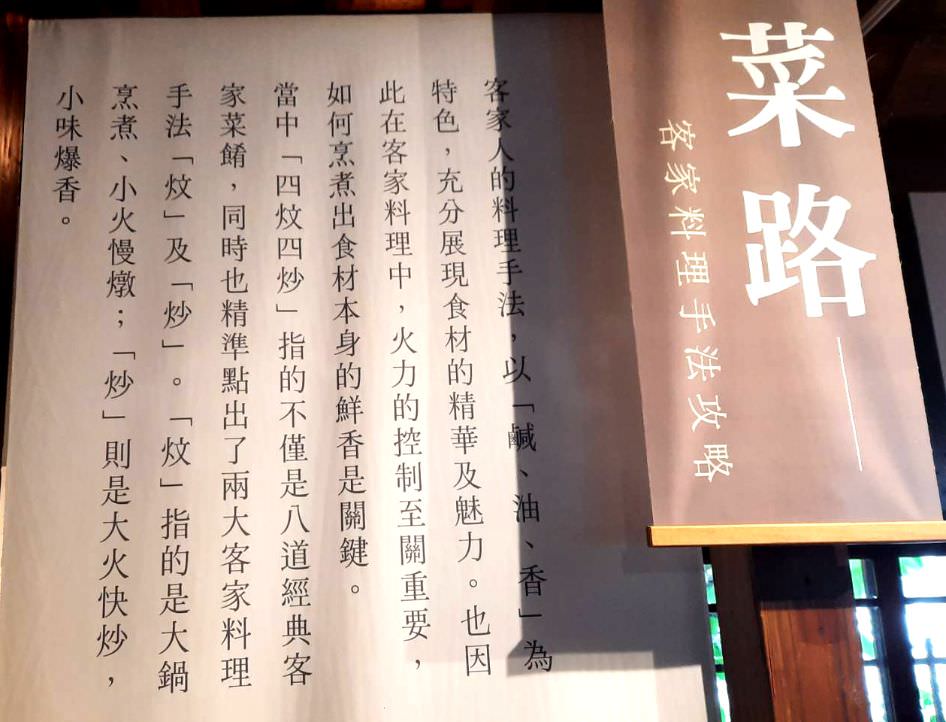 菜路
客家料理手法攻略
客家人的料理手法，以「鹹、油、香」為
特色，充分展現食材的精華及魅力。也因
此在客家料理中，火力的控制至關重要，
如何烹煮出食材本身的鮮香是關鍵。
當中「四炆四炒」指的不僅是八道經典客
家菜餚，同時也精準點出了兩大客家料理
手法「炆」及「炒」。「炆」指的是大鍋
烹煮、小火慢燉；「炒」則是大火快炒，
小味爆香。